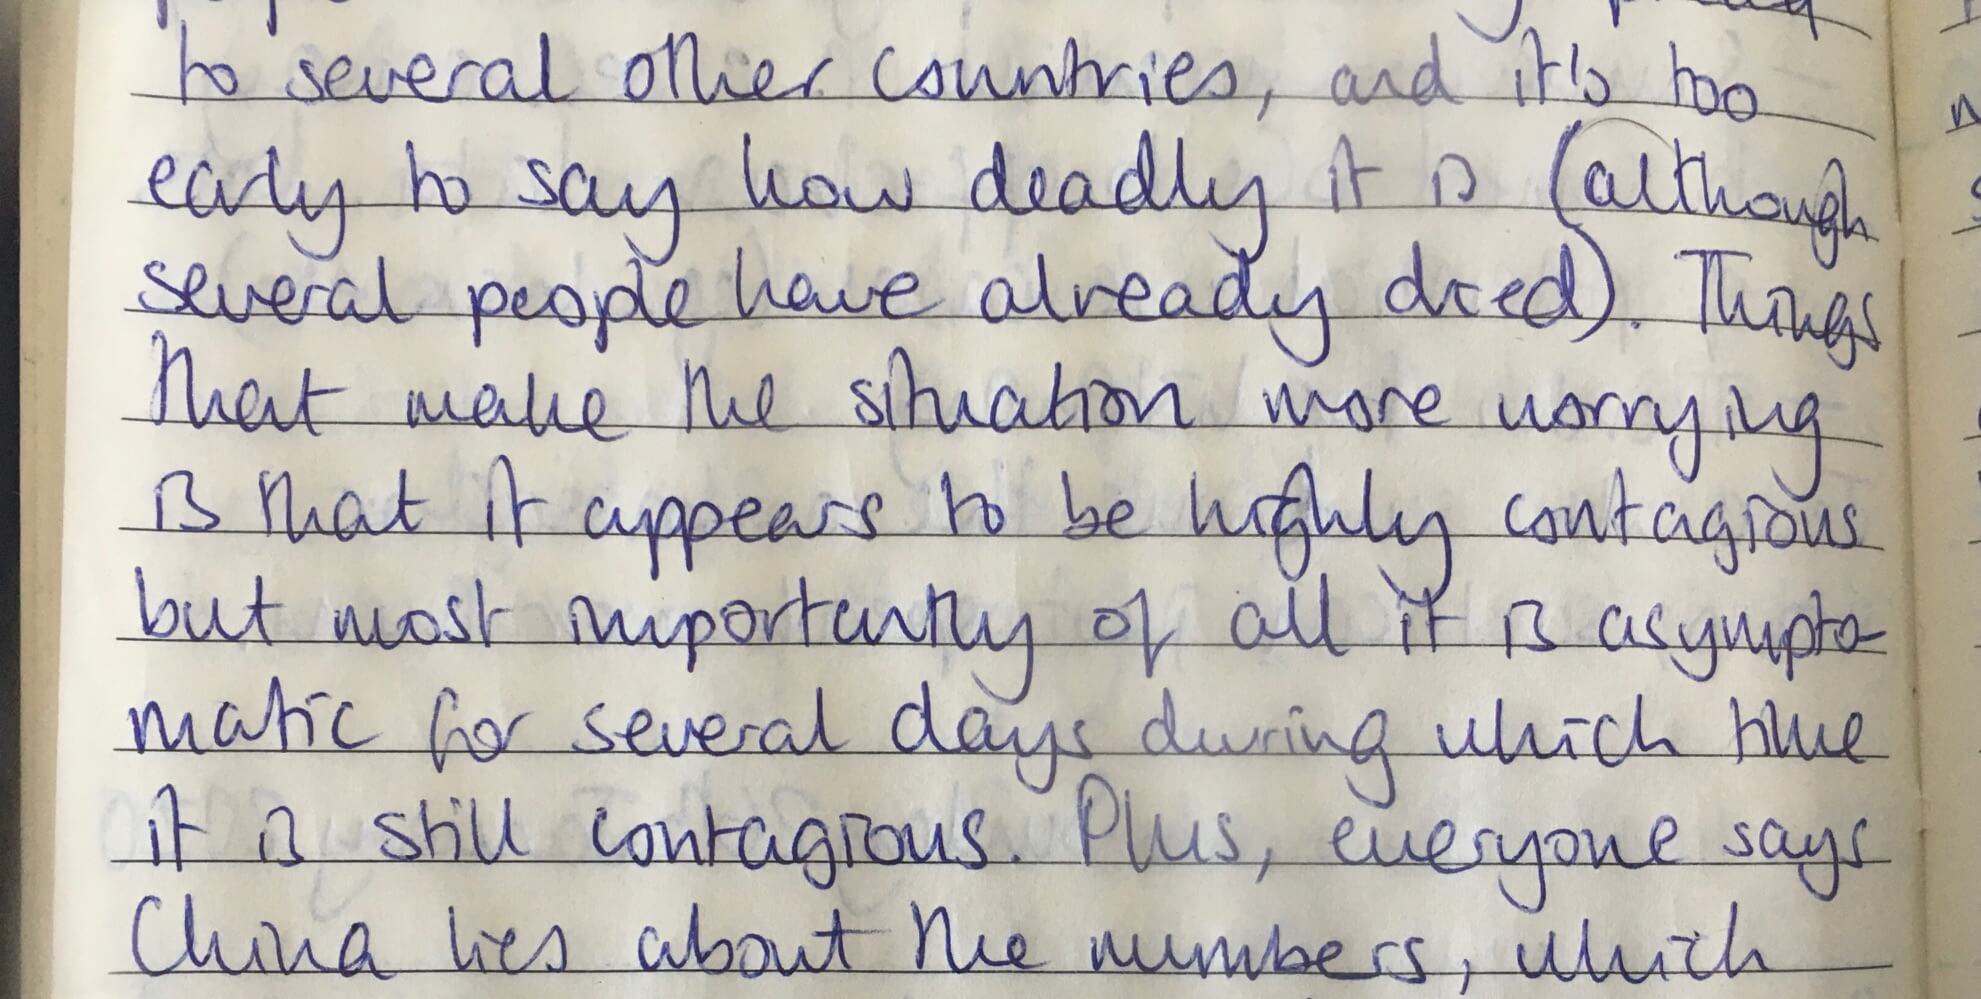 to several other countries, and it's too
early to say how deadly it is (although
several people have already died). Things
that make the situation more worrying
is that it appears to be highly contagious
but most importantly of all it is asympto-
matic for several days during which time
it is still contagious. Plus, everyone says
China lies about the numbers, which